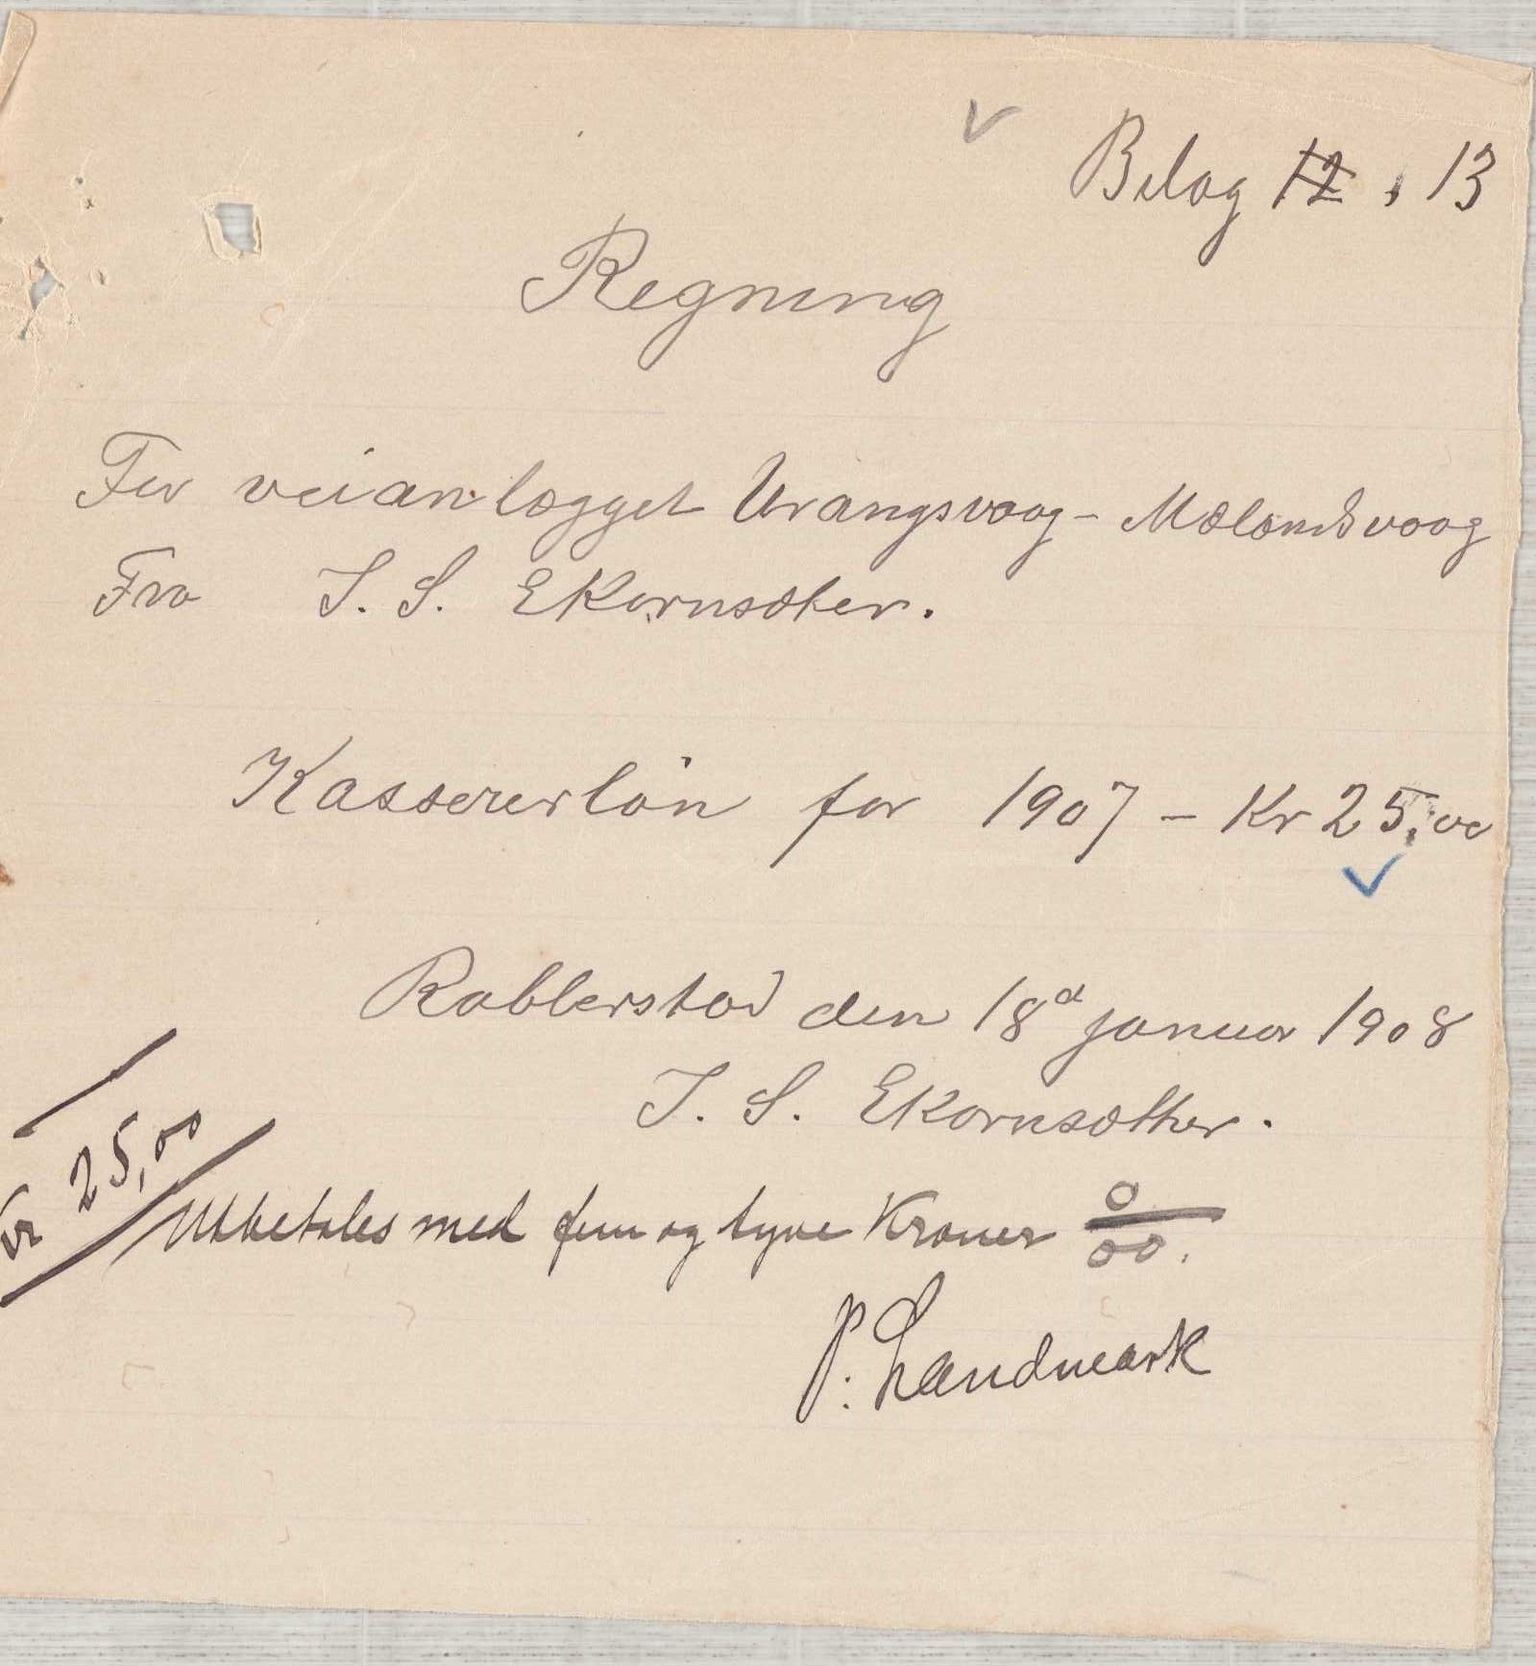 Bilag 12, 13
Regning
For veianlægget Urangsvaag - Mælandsvaag
Fra J. S. Ekornsæter.
Kassererlön for 1907 - Kr 25,00
Rabberstad den 18d januar 1908
J. S. Ekornsæther.
Kr 25,00
Utbetales med fem og tyve Kroner 0/00.
P. Landmark